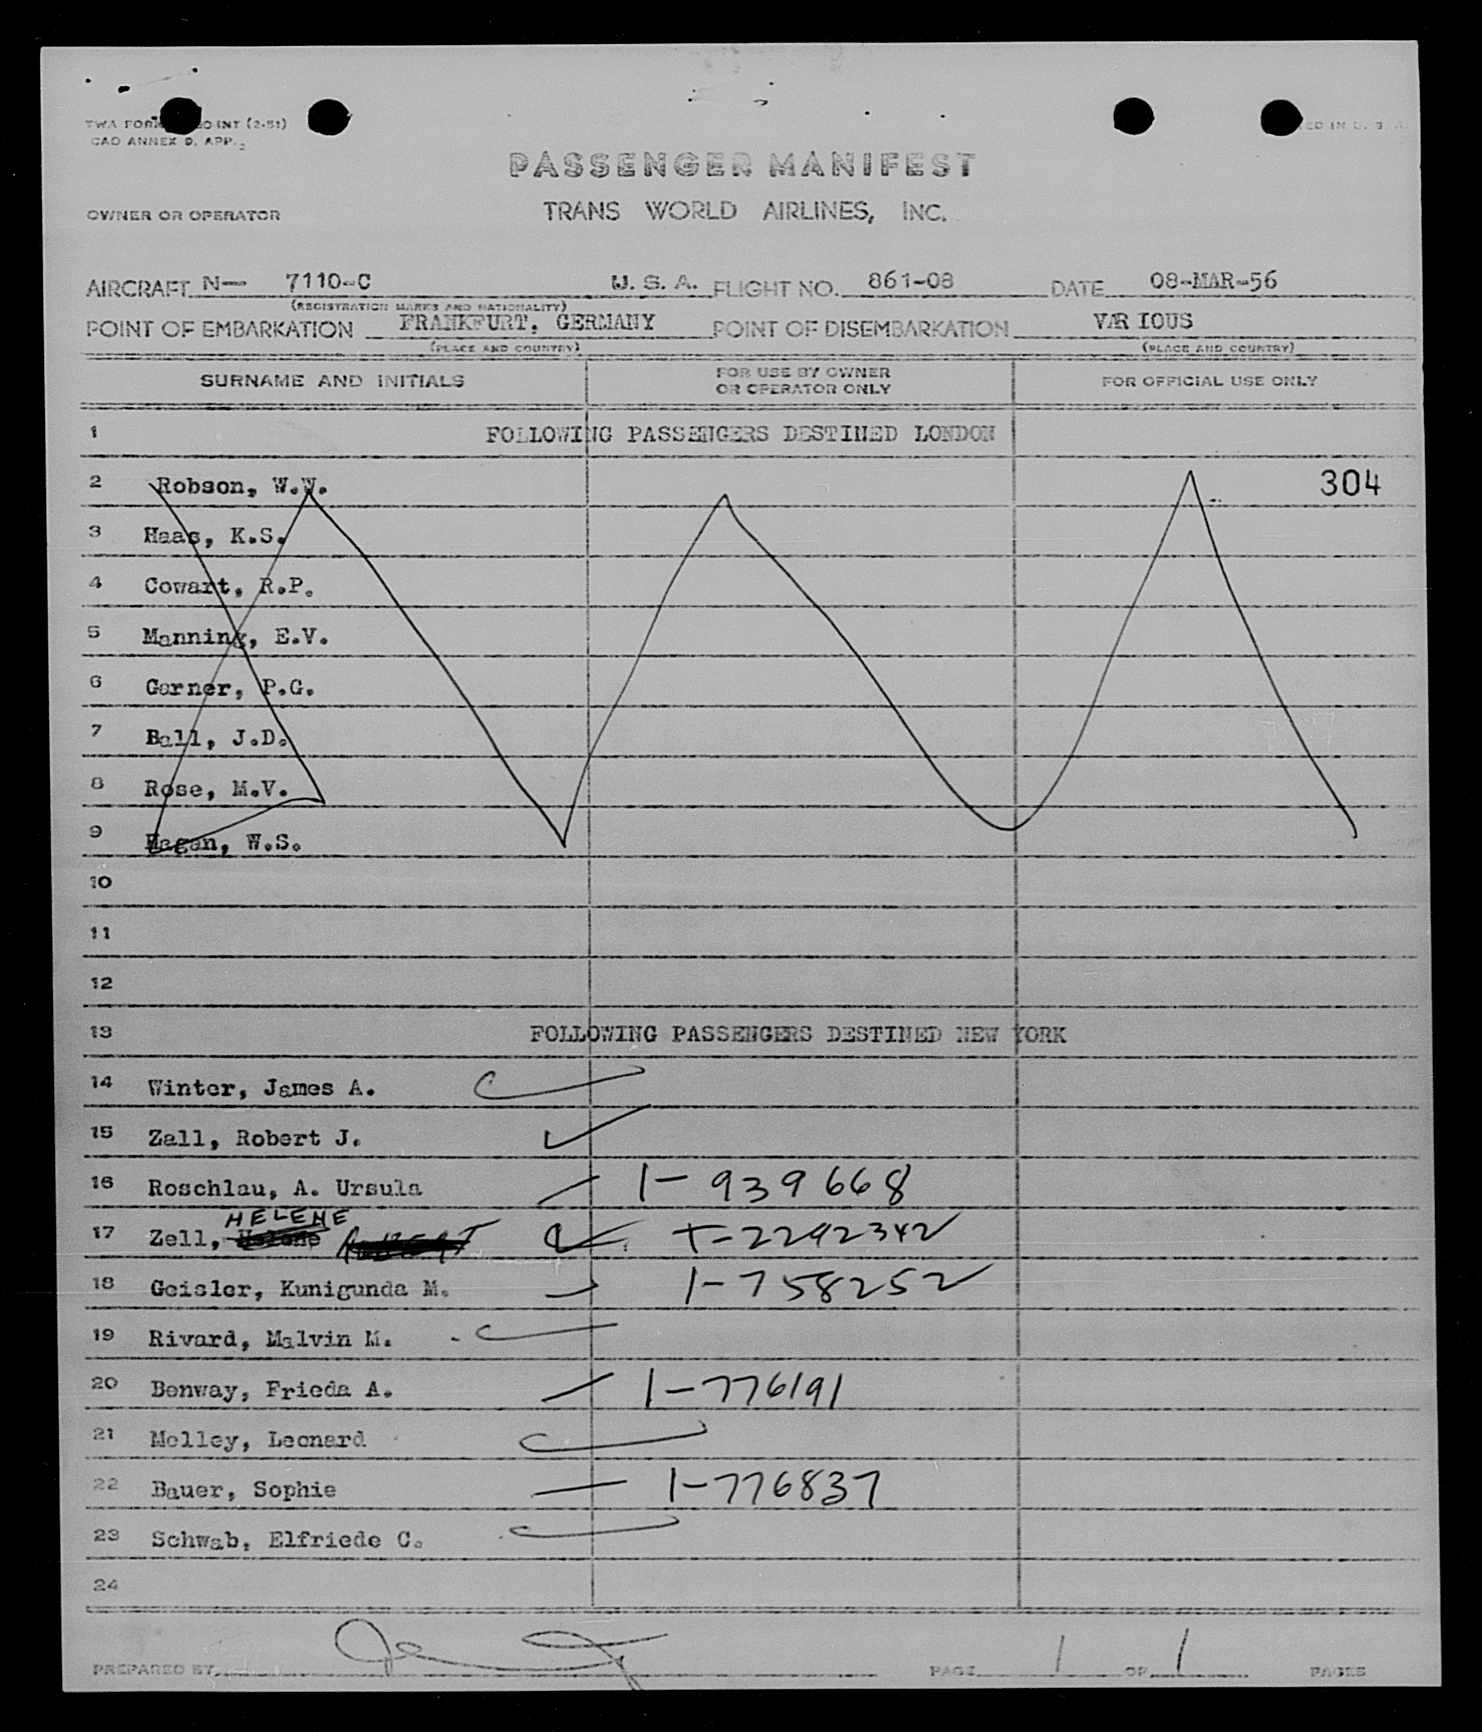 TWA FORM INT (2-51)
CAO ANNEX 9, APP.
ED IN U. S. A.
PASSENGER MANIFEST
OWNER OR OPERATOR TRANS WORLD AIRLINES, INC.
AIRCRAFT N— 7110-C U. S. A. FLIGHT NO. 861-08 DATE 08-MAR-56
(REGISTRATION MARKS AND NATIONALITY)
POINT OF EMBARKATION FRANKFURT, GERMANY POINT OF DISEMBARKATION VAR IOUS
(PLACE AND COUNTRY) (PLACE AND COUNTRY)
SURNAME AND INITIALS FOR USE BY OWNER OR OPERATOR ONLY FOR OFFICIAL USE ONLY
1 FOLLOWING PASSENGERS DESTINED LONDON
2 Robson, W.W. 304
3 Haas, K.S.
4 Cowart, R.P.
5 Manning, E.V.
6 Garner, P.G.
7 Ball, J.D.
8 Rose, M.V.
9 Hagan, W.S.
10
11
12
13 FOLLOWING PASSENGERS DESTINED NEW YORK
14 Winter, James A.
15 Zall, Robert J.
16 Roschlau, A. Ursula 1-939668
17 Zell, HELENE T-2292342
18 Geisler, Kunigunda M. 1-758252
19 Rivard, Malvin M.
20 Benway, Frieda A. 1-776191
21 Molley, Leonard
22 Bauer, Sophie 1-776837
23 Schwab, Elfriede C.
24
PREPARED BY PAGE 1 OF 1 PAGES